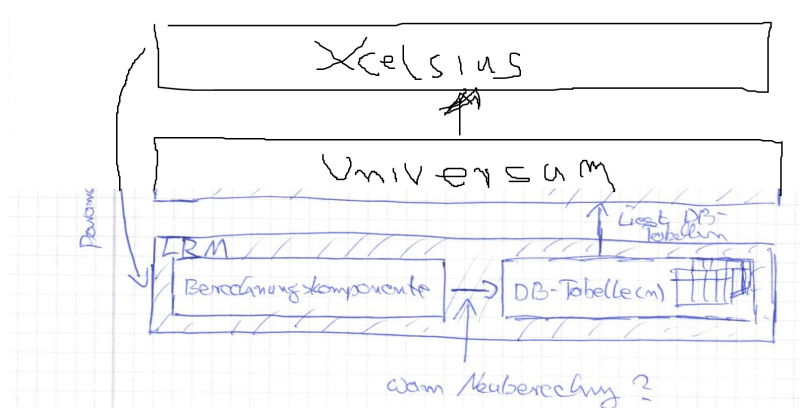 Xcelsius
Universum
Params
Liest DB-
Tabellen
LRM
Berechnungskomponente
DB-Tabelle(n)
Wann Neuberechnung ?